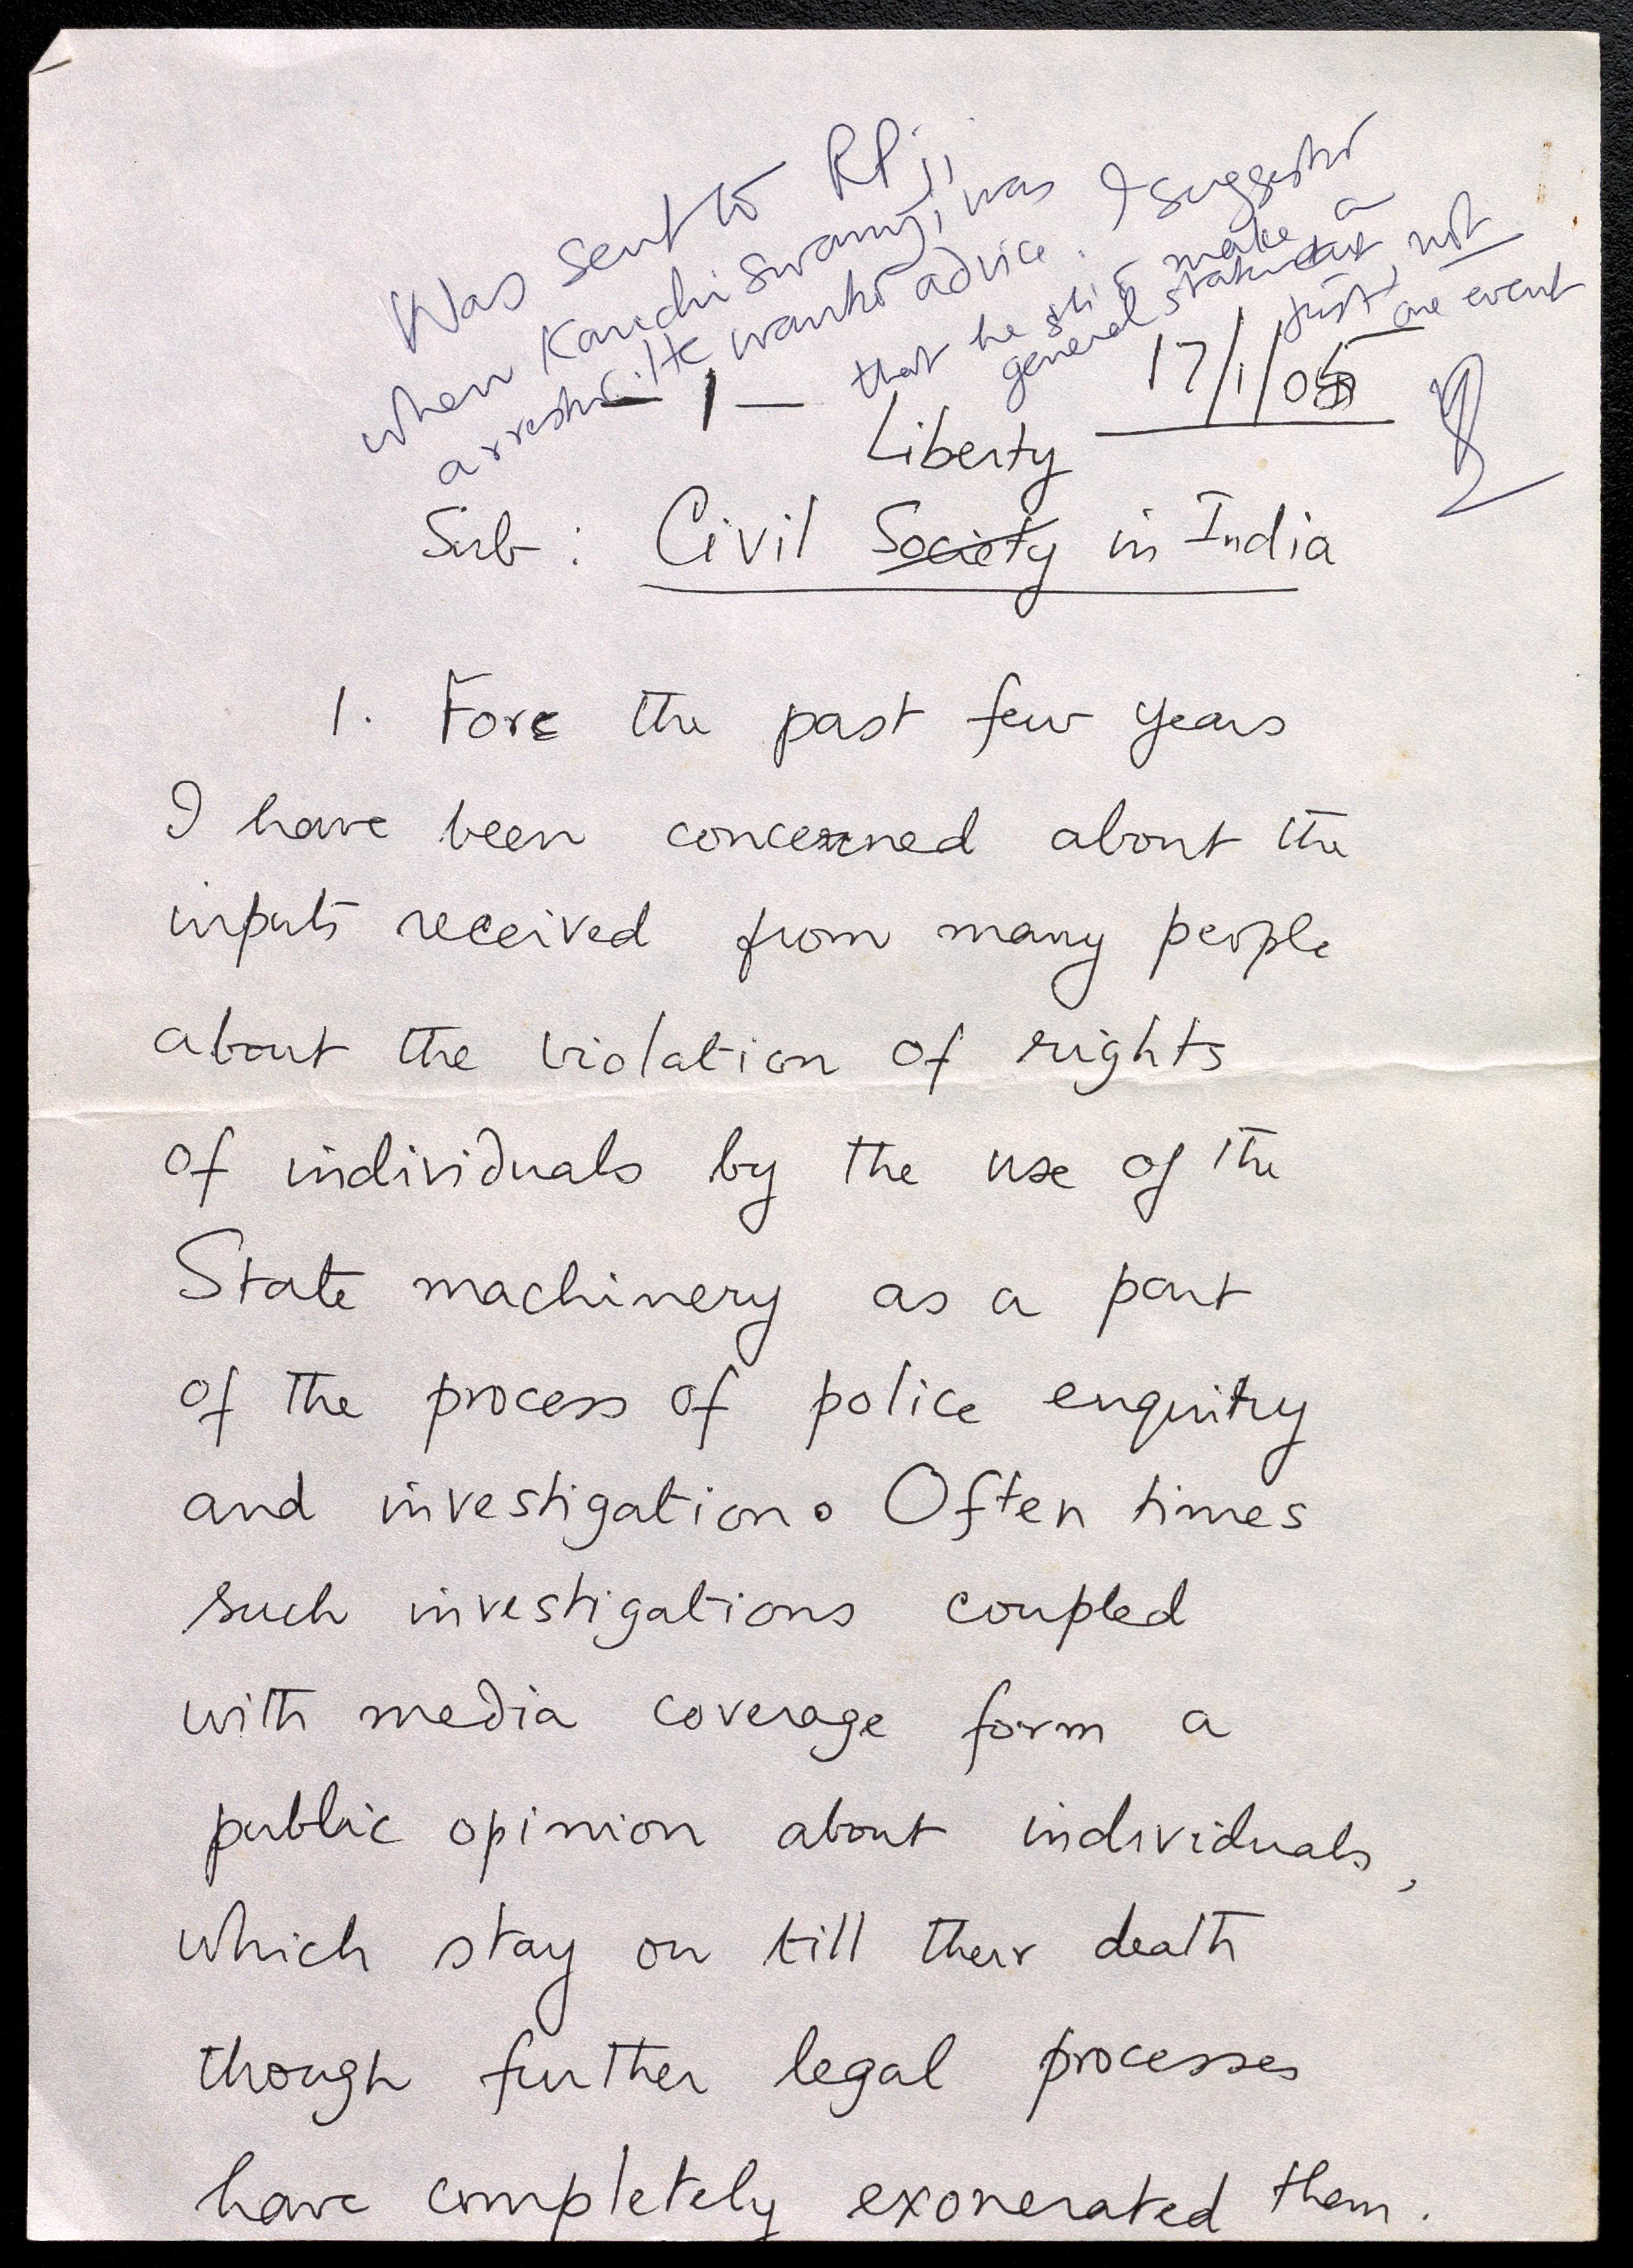 Was sent to RPji
when Kanchi Swamiji was
arrested. He wanted advice. I suggested
that he shd make a
general statement, not
just one event
- 1 -
17/1/05
Liberty
Sub : Civil Society in India
1. Fore the past few years
I have been concerned about the
inputs received from many people
about the violation of rights
of individuals by the use of the
State machinery as a part
of the process of police enquiry
and investigation. Often times
such investigations coupled
with media coverage form a
public opinion about individuals,
which stay on till their death
though further legal processes
have completely exonerated them.